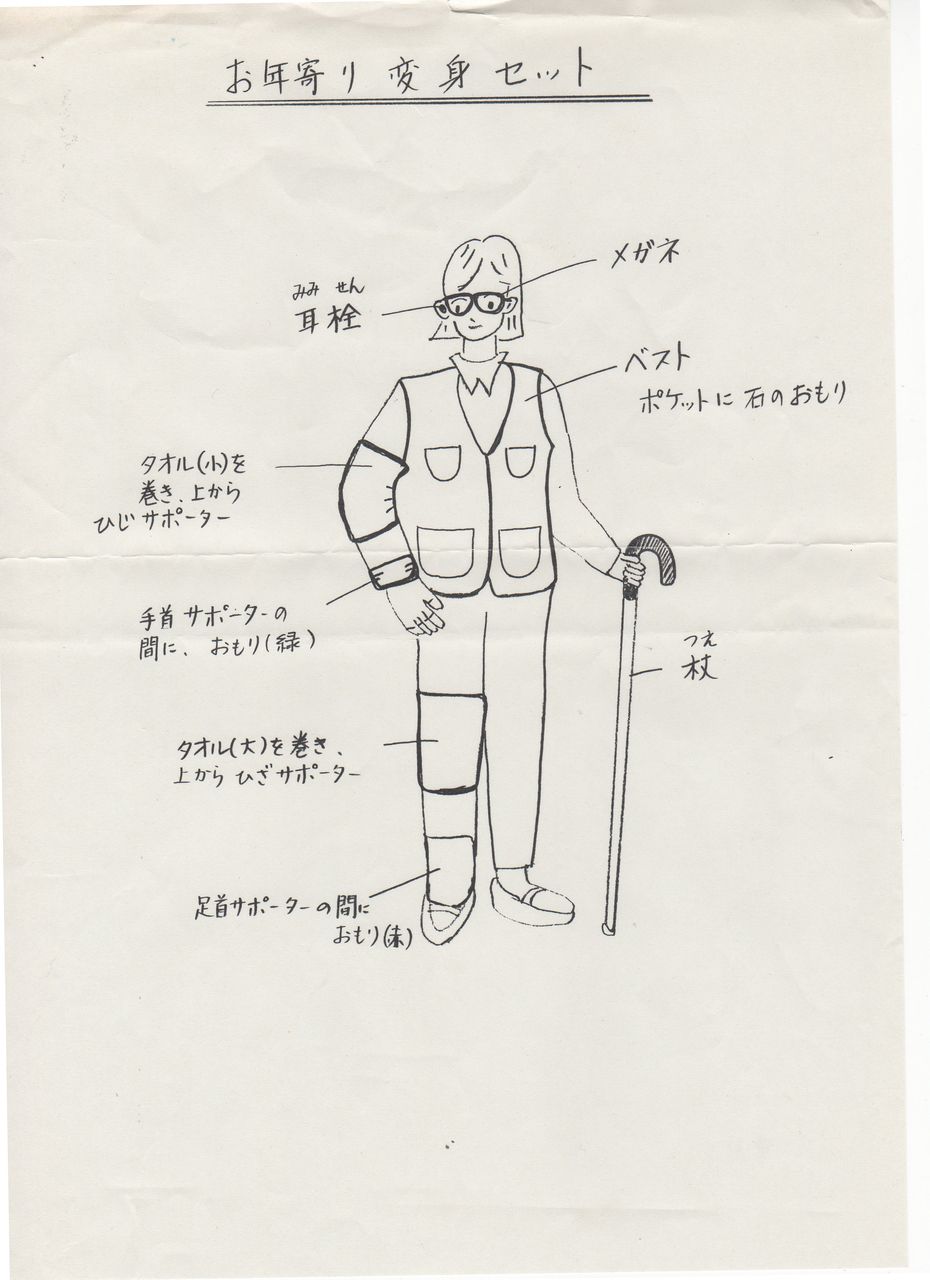 お年寄り変身セット
メガネ
みみ せん
耳栓
ベスト
ポケットに石のおもり
タオル(小)を
巻き、上から
ひじサポーター
手首サポーターの
間に、おもり(緑)
つえ
杖
タオル(大)を巻き、
上からひざサポーター
足首サポーターの間に
おもり(赤)